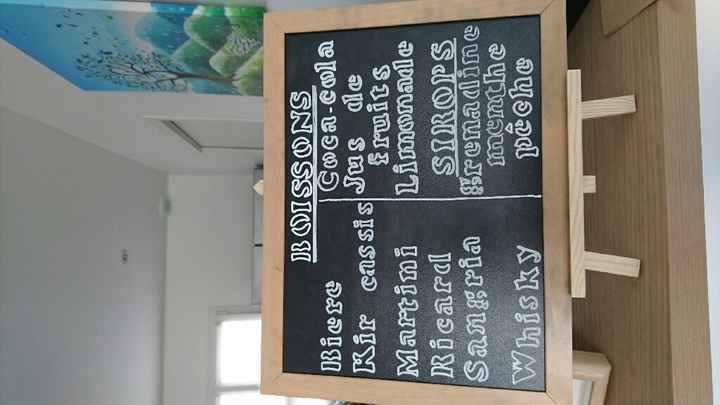 BOISSONS
Biere
Kir cassis
Martini
Ricard
Sangria
Whisky
Coca-cola
Jus de
fruits
Limonade
SIROPS
grenadine
menthe
pêche